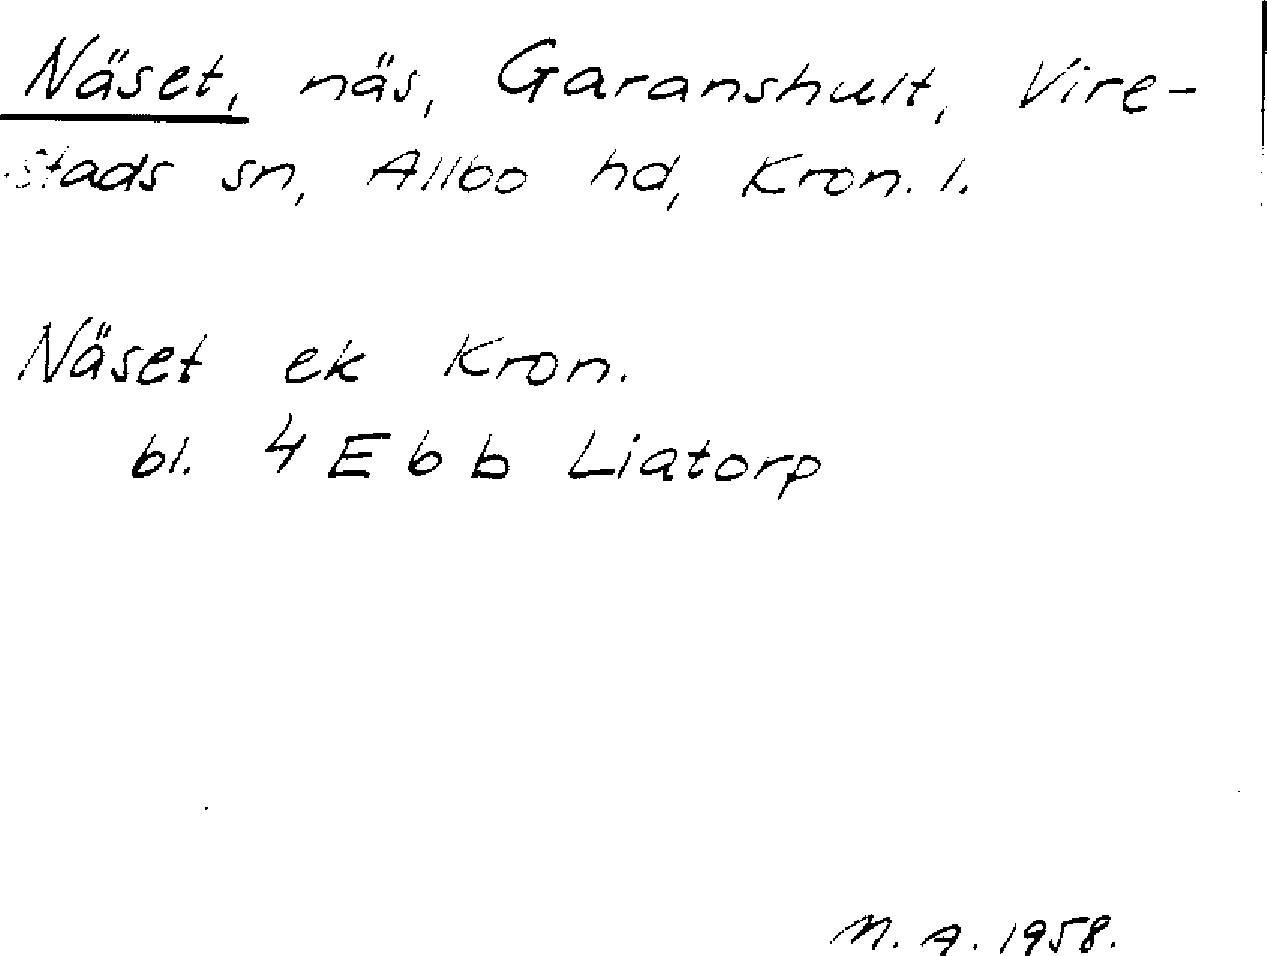 Näset, näs, Garanshult, Vire-
stads sn, Allbo hd, Kron. l.
Näset ek Kron.
bl. 4 E b b Liatorp
M. A. 1958.